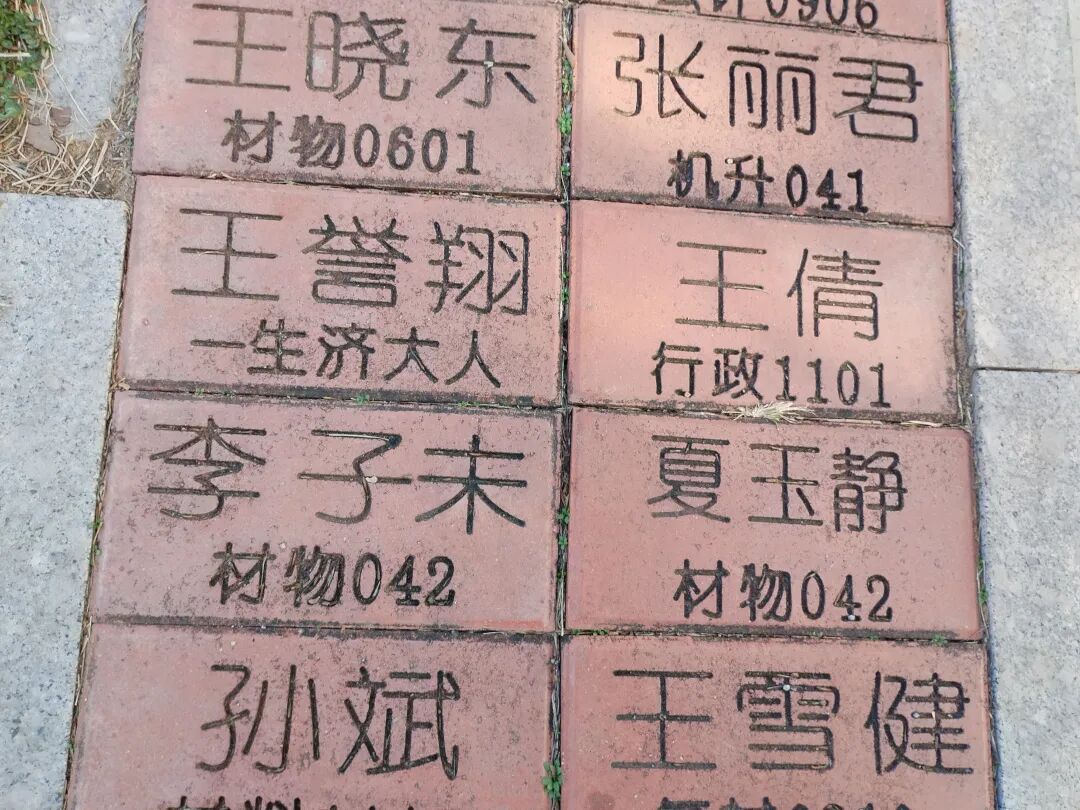 0906
王晓东
材物0601
张丽君
机升041
王誉翔
一生济大人
王倩
行政1101
李子未
材物042
夏玉静
材物042
孙斌
王雪健